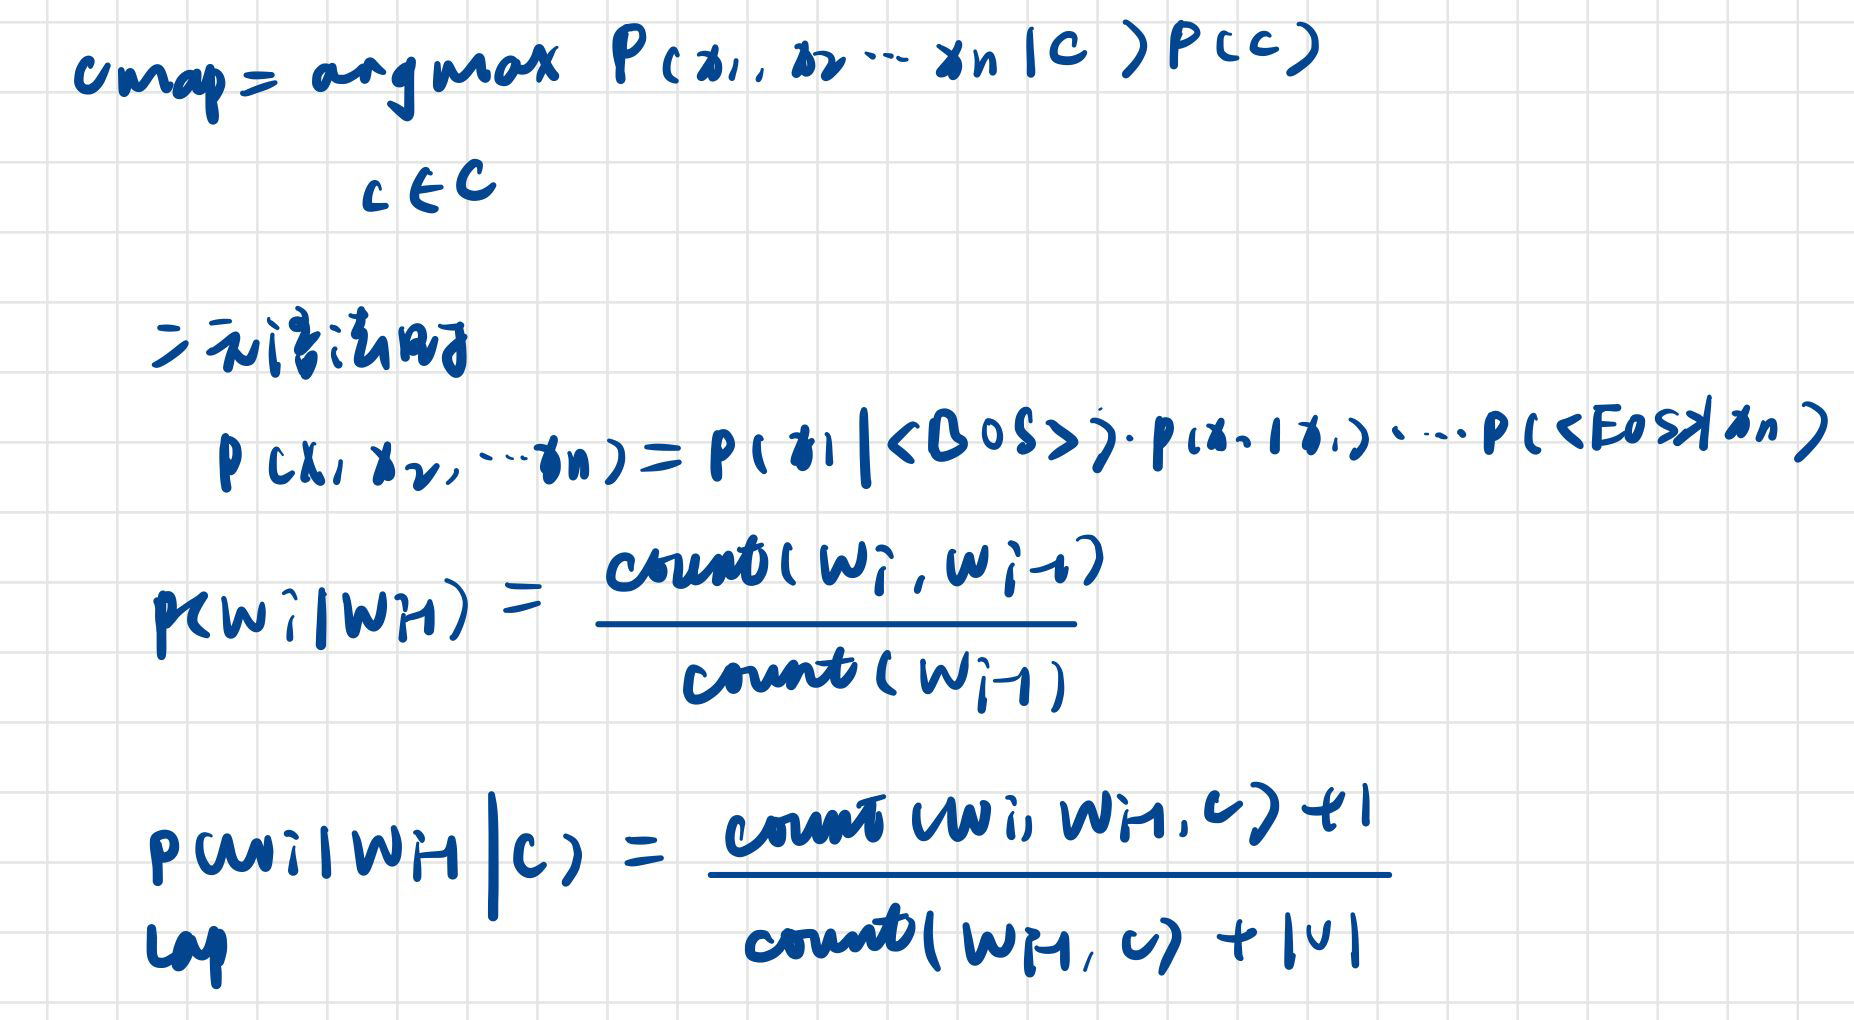 cmap = argmax P(x1, x2 … xn | C) P(c)
c ∈ C
二元语法时
P(x1 x2, … xn) = P(x1 | <BOS>) · P(x2 | x1) · … P(<EOS> | xn)
P(wi | wi-1) = count(wi, wi-1) / count(wi-1)
P(wi | wi-1 | c) = count(wi, wi-1, c) + 1 / count(wi-1, c) + |V|
Lap